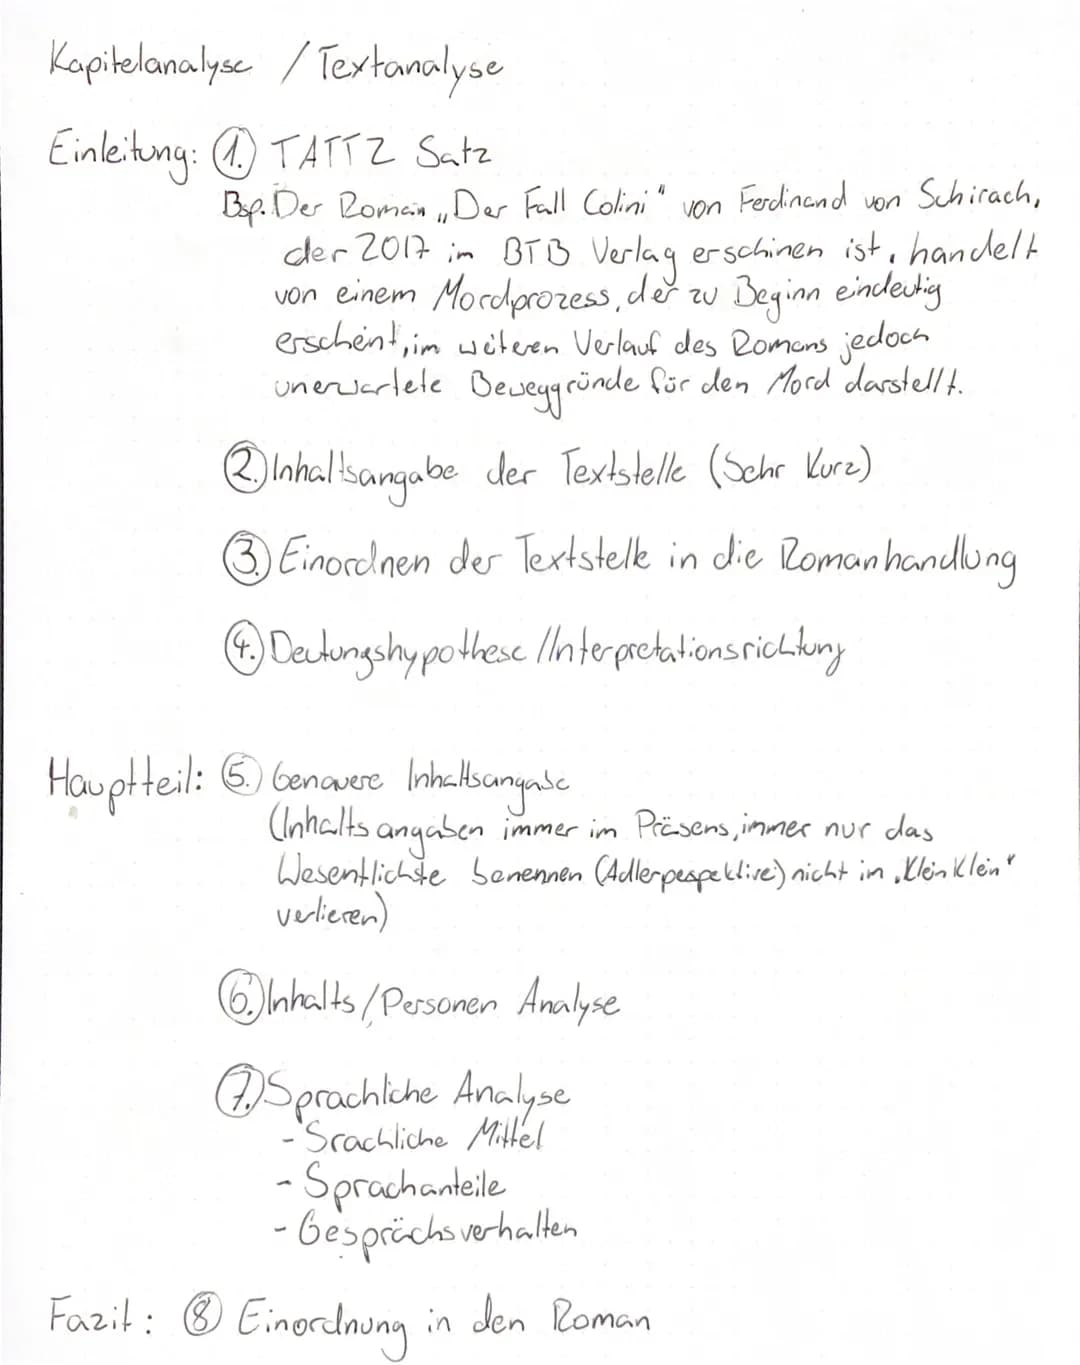 Kapitelanalyse / Textanalyse
Einleitung: 1. TATTZ Satz
Bsp. Der Roman „Der Fall Colini" von Ferdinand von Schirach,
der 2017 im BTB Verlag erschinen ist, handelt
von einem Mordprozess, der zu Beginn eindeutig
erscheint, im weiteren Verlauf des Romans jedoch
unerwartete Beweggründe für den Mord darstellt.
2. Inhaltsangabe der Textstelle (Sehr Kurz)
3. Einordnen der Textstelle in die Romanhandlung
4. Deutungshypothese / Interpretationsrichtung
Hauptteil: 5. Genauere Inhaltsangabe
(Inhaltsangaben immer im Präsens, immer nur das
Wesentlichste benennen (Adlerpespektive) nicht in „Klein Klein"
verlieren)
6. Inhalts/Personen Analyse
7. Sprachliche Analyse
- Srachliche Mittel
- Sprachanteile
- Gesprächsverhalten
Fazit: 8 Einordnung in den Roman